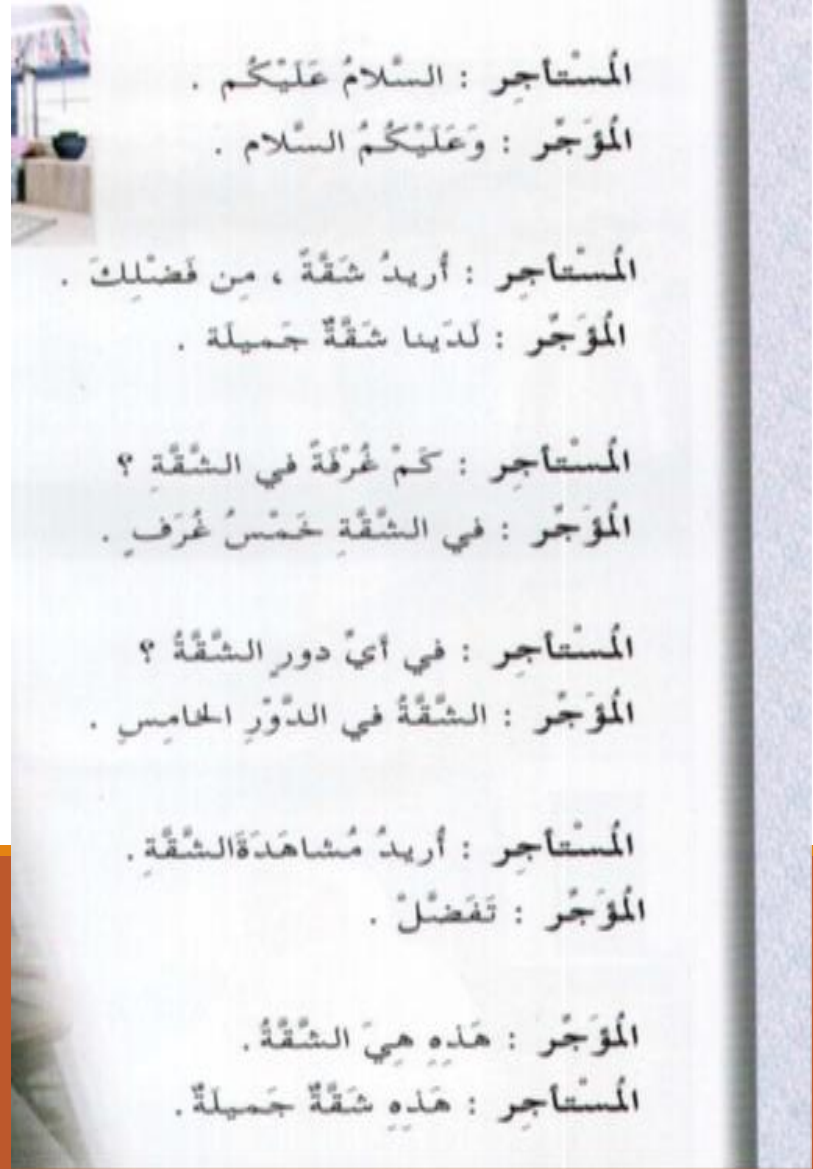 المُسْتأجِر : السَّلامُ عَلَيْكُم .
المُؤَجِّر : وَعَلَيْكُمُ السَّلام .
المُسْتأجِر : أُريدُ شَقَّةً ، مِن فَضْلِكَ .
المُؤَجِّر : لَدَينا شَقَّةٌ جَميلَة .
المُسْتأجِر : كَمْ غُرْفَةً في الشَّقَّةِ ؟
المُؤَجِّر : في الشَّقَّةِ خَمْسُ غُرَفٍ .
المُسْتأجِر : في أيِّ دورٍ الشَّقَّةُ ؟
المُؤَجِّر : الشَّقَّةُ في الدَّوْرِ الخامِسِ .
المُسْتأجِر : أُريدُ مُشاهَدَةَالشَّقَّةِ .
المُؤَجِّر : تَفَضَّلْ .
المُؤَجِّر : هَذِهِ هِيَ الشَّقَّةُ .
المُسْتأجِر : هَذِهِ شَقَّةٌ جَميلَةٌ .